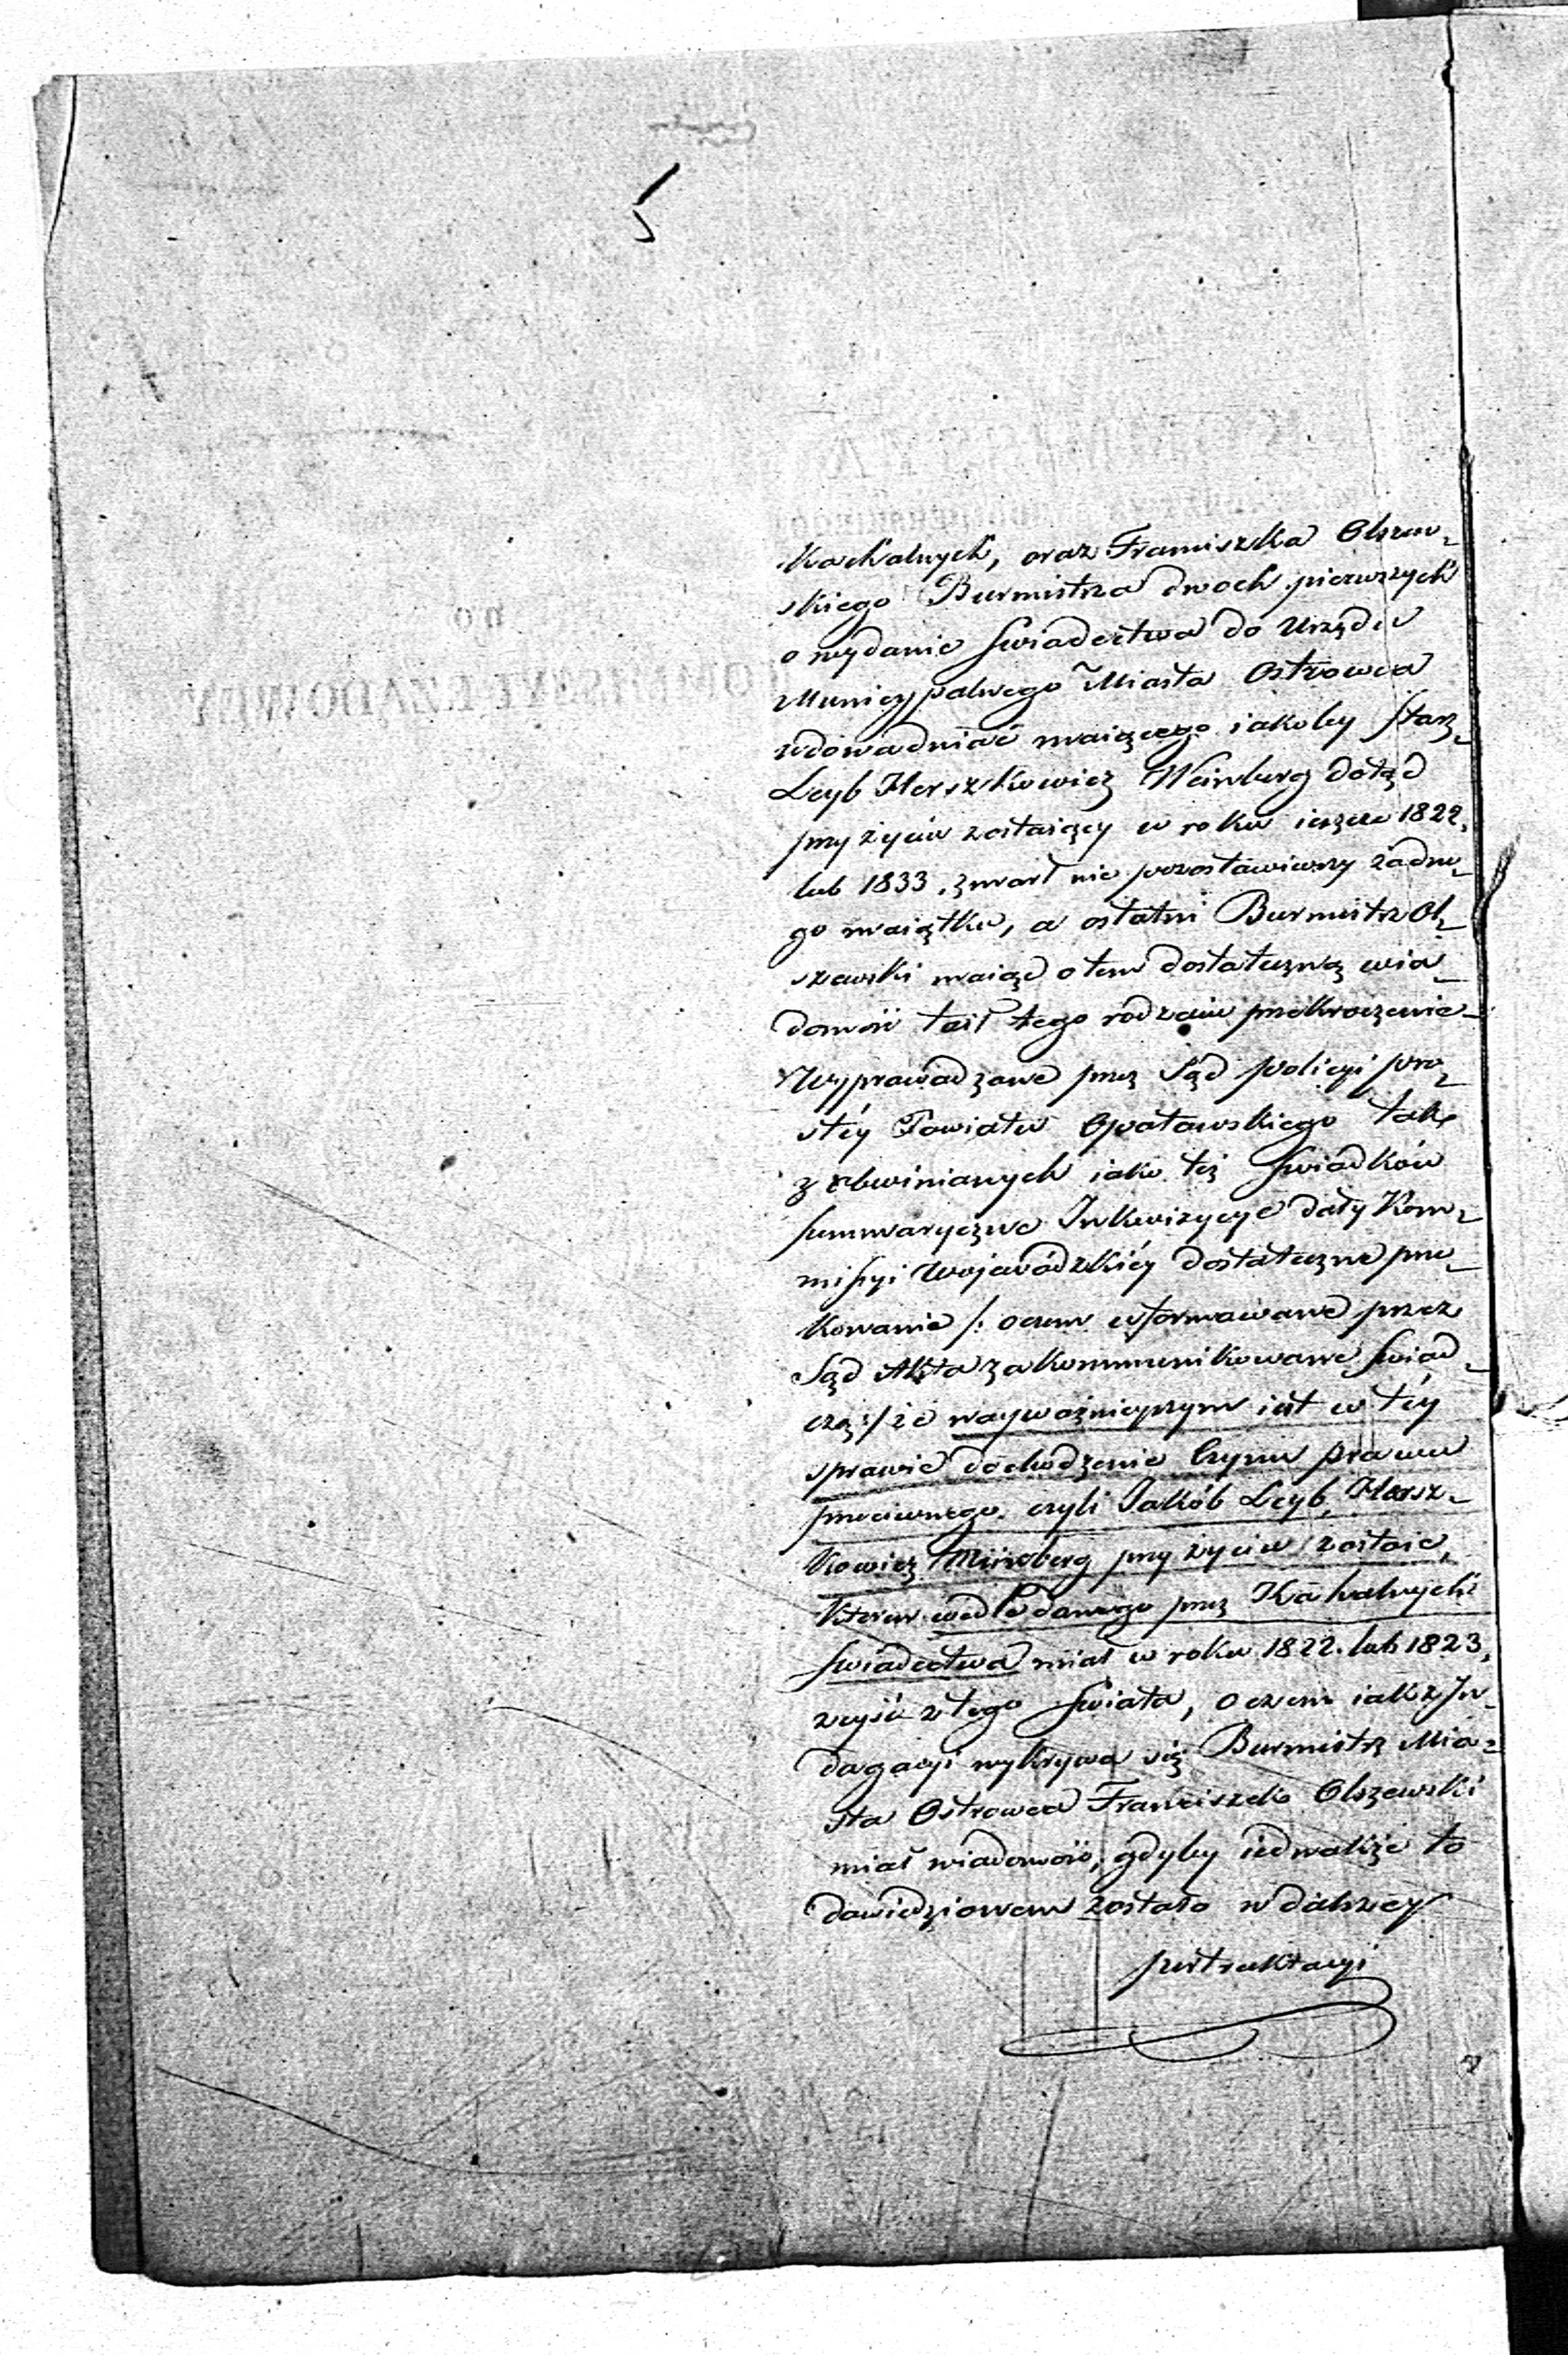 5
Kachalnych, oraz Franciszka Olszew-
skiego Burmistrza dwoch pierwszych
o wydanie Swiadectwa do Urzędu
Municypalnego Miasta Ostrowca
udowadniać maiącego iakoby Starz.
Leyb Herszkowicz Weinberg dotąd
przy życiu zostaiący w roku ieszcze 1822,
lub 1833. zmarł nie pozostawiwszy żadne-
go maiątku, a ostatni Burmistrz Ol-
szewski maiąc o tem dostateczną wia-
domość taił tego rodzaiu przekroczenie_
Wyprowadzone przez Sąd policyi pro-
stéy Powiatu Opatowskiego tak
z obwinianych iako też Swiadków
summaryczne Inkwizycye dały Kom-
missyi Wojewódzkiéy dostateczne prze-
konanie /: o czem uformowane przez
Sąd Akta zakommunikowane Swiad-
czą :/ że nayważnieyszym iest w téy
sprawie dochodzenie Czynu prawu
przeciwnego. czyli Jakób Leyb, Hersz-
kowicz Münzberg przy życiu zostaie,
który wedle danego przez Kahalnych
Swiadectwa miał w roku 1822. lub 1823,
zeyść z tego Swiata, o czem iak z In-
dagacyi wykrywa się Burmistrz Mia-
sta Ostrowca Franciszek Olszewski
miał wiadomość, gdyby iednakże to
dowiedzionem zostało w dalszey
pertraktacyi